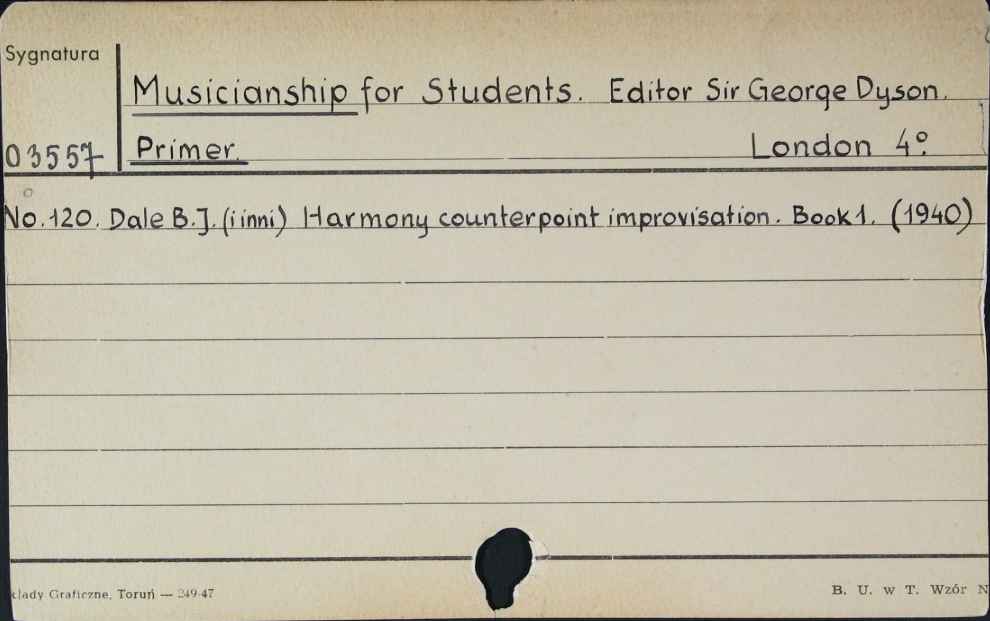 Sygnatura
Musicianship for Students. Editor Sir George Dyson.
03557 Primer. London 4º
No. 120. Dale B.J. (i inni) Harmony counterpoint improvisation. Book 1. (1940)
kłady Graficzne, Toruń — 249-47 B. U. w T. Wzór N